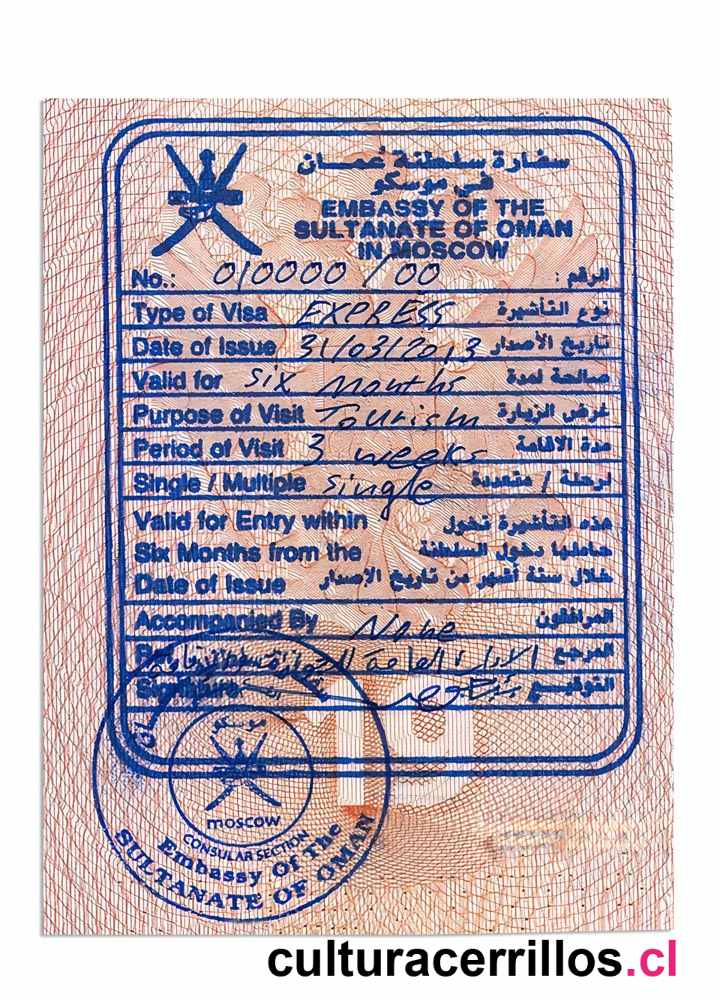 سفارة سلطنة عُمان
في موسكو
EMBASSY OF THE
SULTANATE OF OMAN
IN MOSCOW
No.: 010000 / 00 الرقم :
Type of Visa EXPRESS نوع التأشيرة
Date of Issue 31/03/2013 تاريخ الأصدار
Valid for six months صالحة لمدة
Purpose of Visit Tourism غرض الزيارة
Period of Visit 3 weeks مدة الاقامة
Single / Multiple single لرحلة / متعددة
Valid for Entry within هذه التأشيرة تخول
Six Months from the حاملها دخول السلطنة
Date of Issue خلال ستة أشهر من تاريخ الإصدار
Accompanied By None المرافقون
المرجع
Signature التوقيع
موسكو
MOSCOW
CONSULAR SECTION
Embassy Of The
SULTANATE OF OMAN
culturacerrillos.cl